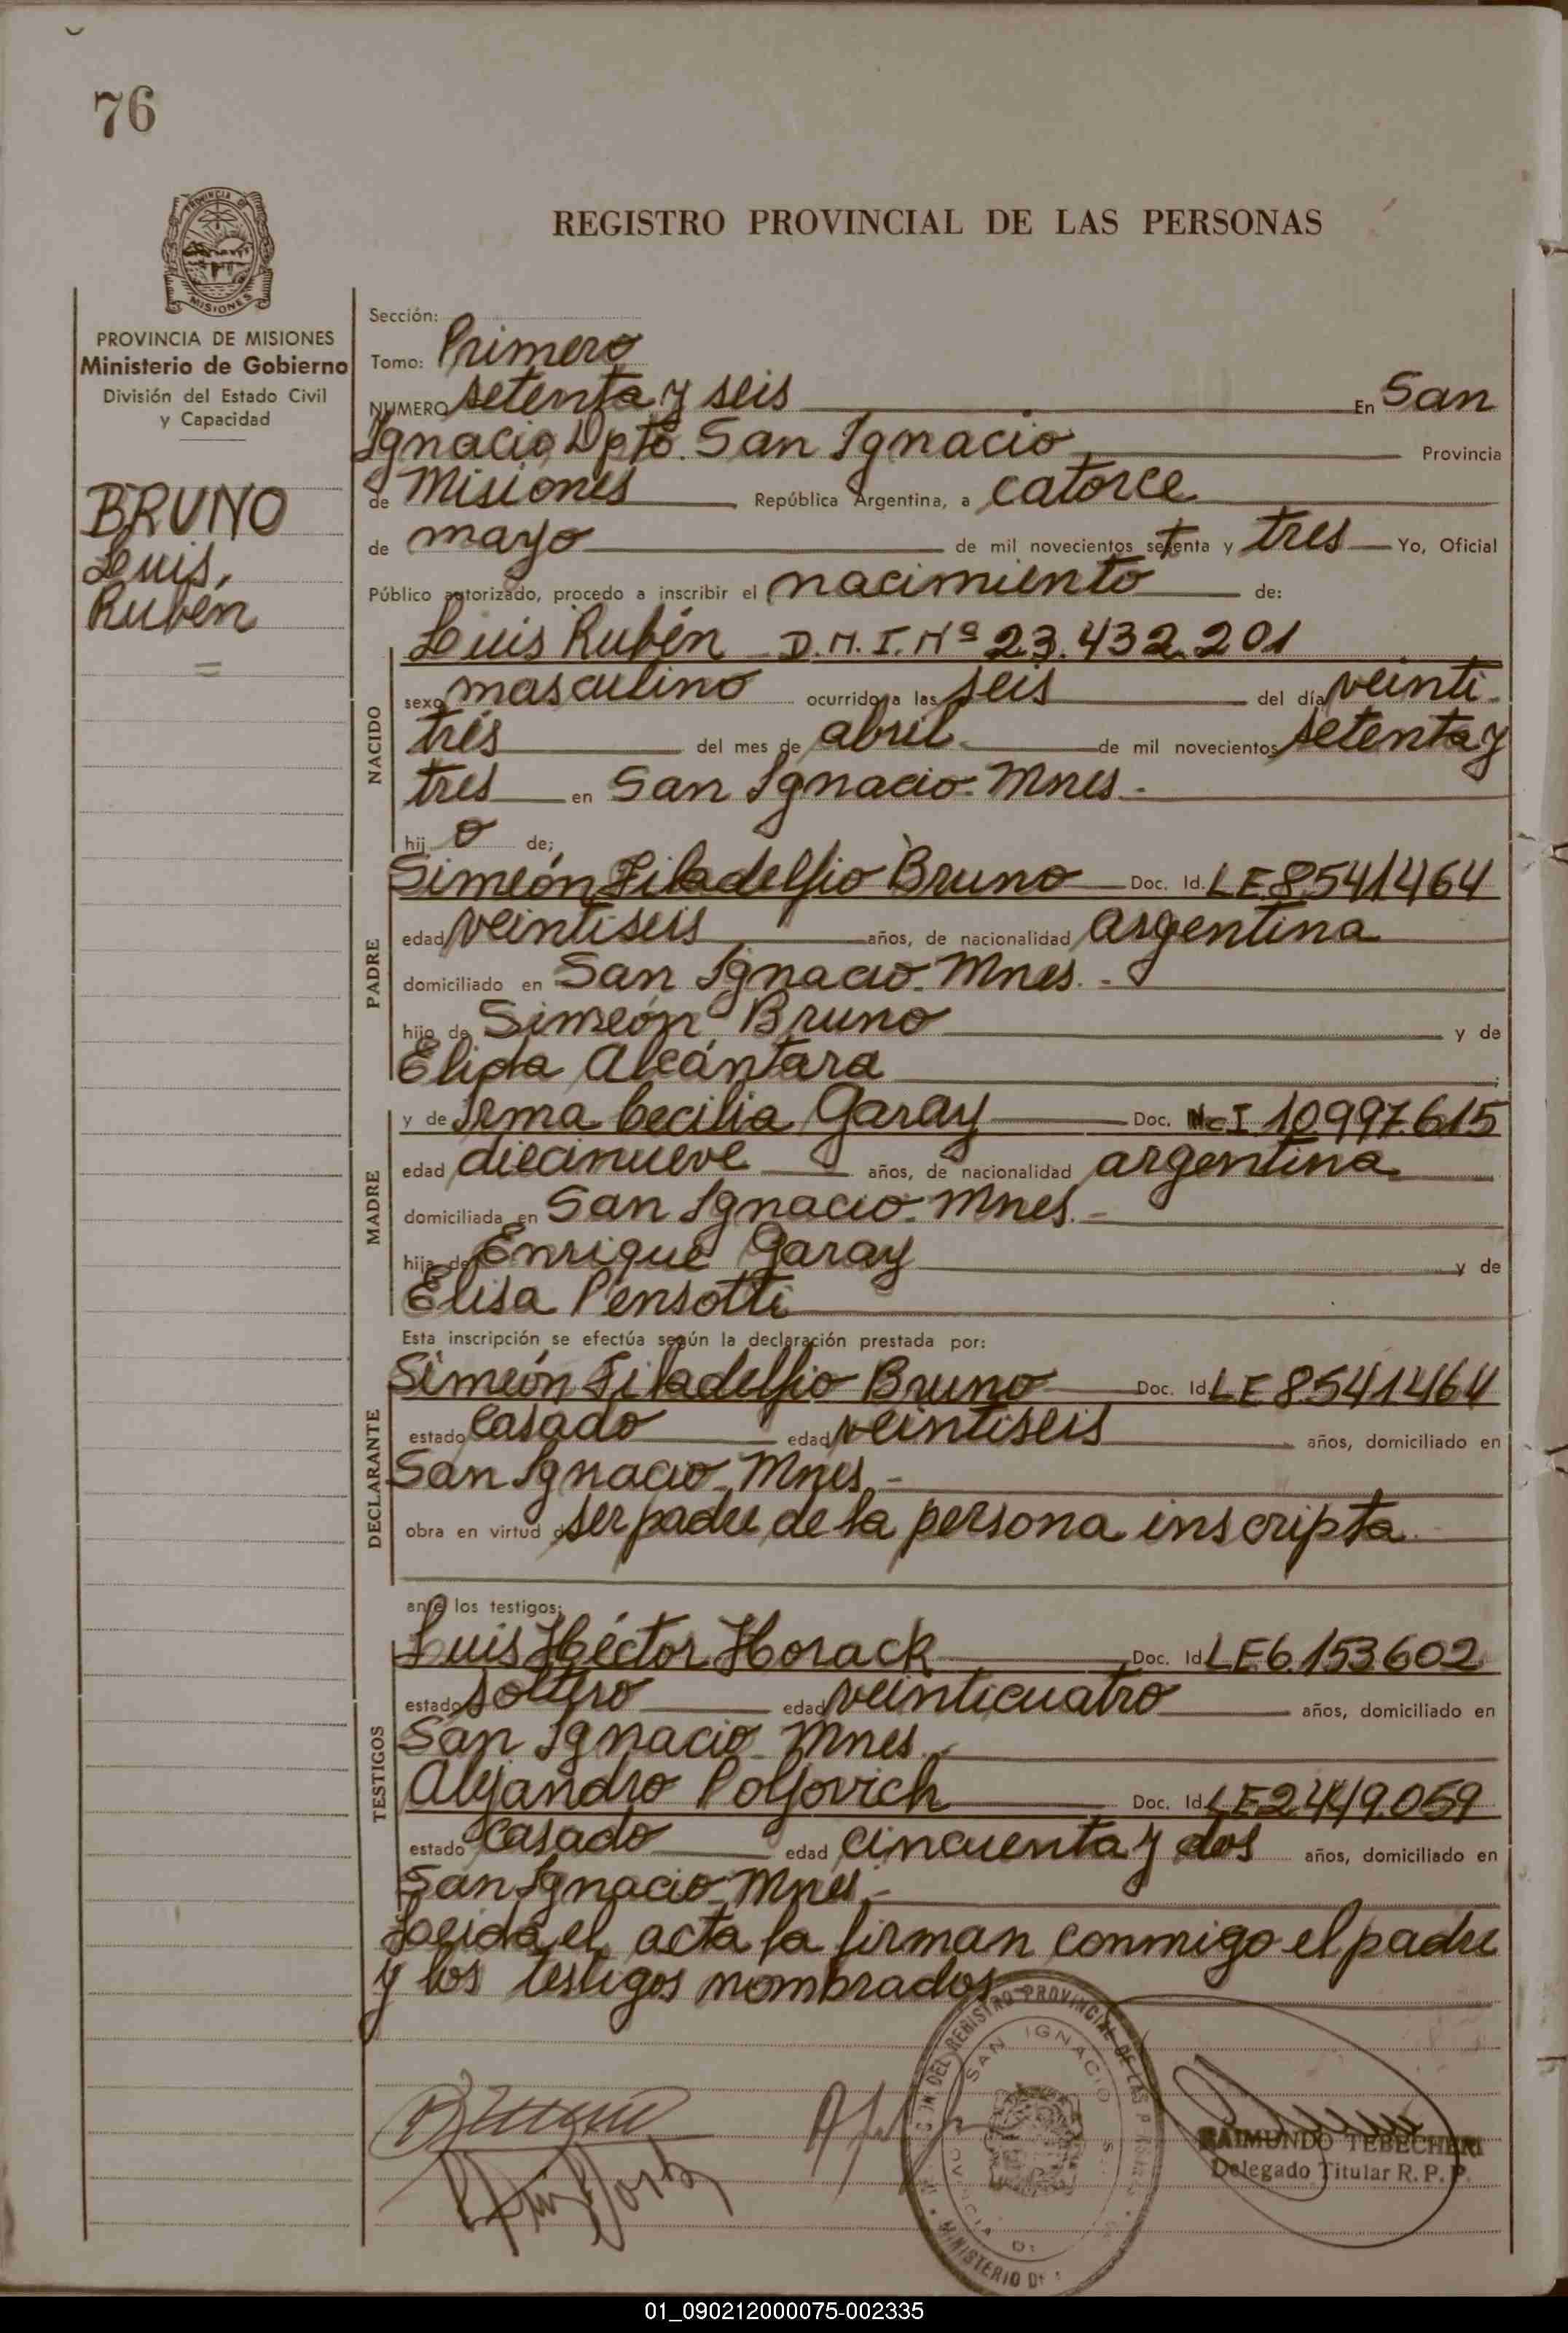 76
PROVINCIA DE
MISIONES
REGISTRO PROVINCIAL DE LAS PERSONAS
PROVINCIA DE MISIONES
Ministerio de Gobierno
División del Estado Civil
y Capacidad
BRUNO
Luis,
Rubén
Sección:
Tomo: Primero
NUMERO setenta y seis En San
Ignacio Dpto. San Ignacio Provincia
de Misiones República Argentina, a catorce
de mayo de mil novecientos setenta y tres Yo, Oficial
Público autorizado, procedo a inscribir el nacimiento de:
NACIDO
Luis Rubén D.N.I. Nº 23.432.201
sexo masculino ocurrido a las seis del día veinti
tres del mes de abril de mil novecientos setenta y
tres en San Ignacio - Mnes.-
hij o de;
PADRE
Simeón Filadelfio Bruno Doc. Id. LE 8.541.464
edad veintiseis años, de nacionalidad argentina
domiciliado en San Ignacio - Mnes. -
hijo de Simeón Bruno y de
Elida Alcántara
MADRE
y de Irma Cecilia Garay Doc. N.I 10.997.615
edad diecinueve años, de nacionalidad argentina
domiciliada en San Ignacio - Mnes. -
hija de Enrique Garay y de
Elisa Pensotti
Esta inscripción se efectúa según la declaración prestada por:
DECLARANTE
Simeón Filadelfio Bruno Doc. Id. LE 8.541.464
estado casado edad veintiseis años, domiciliado en
San Ignacio - Mnes -
obra en virtud de ser padre de la persona inscripta
ante los testigos:
TESTIGOS
Luis Héctor Horack Doc. Id. LE 6.153.602
estado soltero edad veinticuatro años, domiciliado en
San Ignacio - Mnes.-
Alejandro Poljovich Doc. Id. LE 2.449.059
estado casado edad cincuenta y dos años, domiciliado en
San Ignacio - Mnes.-
Leída el acta la firman conmigo el padre
y los testigos nombrados
DEL REGISTRO PROVINCIAL DE LAS
SAN IGNACIO
MINISTERIO DE
RAIMUNDO TEBECHERI
Delegado Titular R. P. P.
01_090212000075-002335